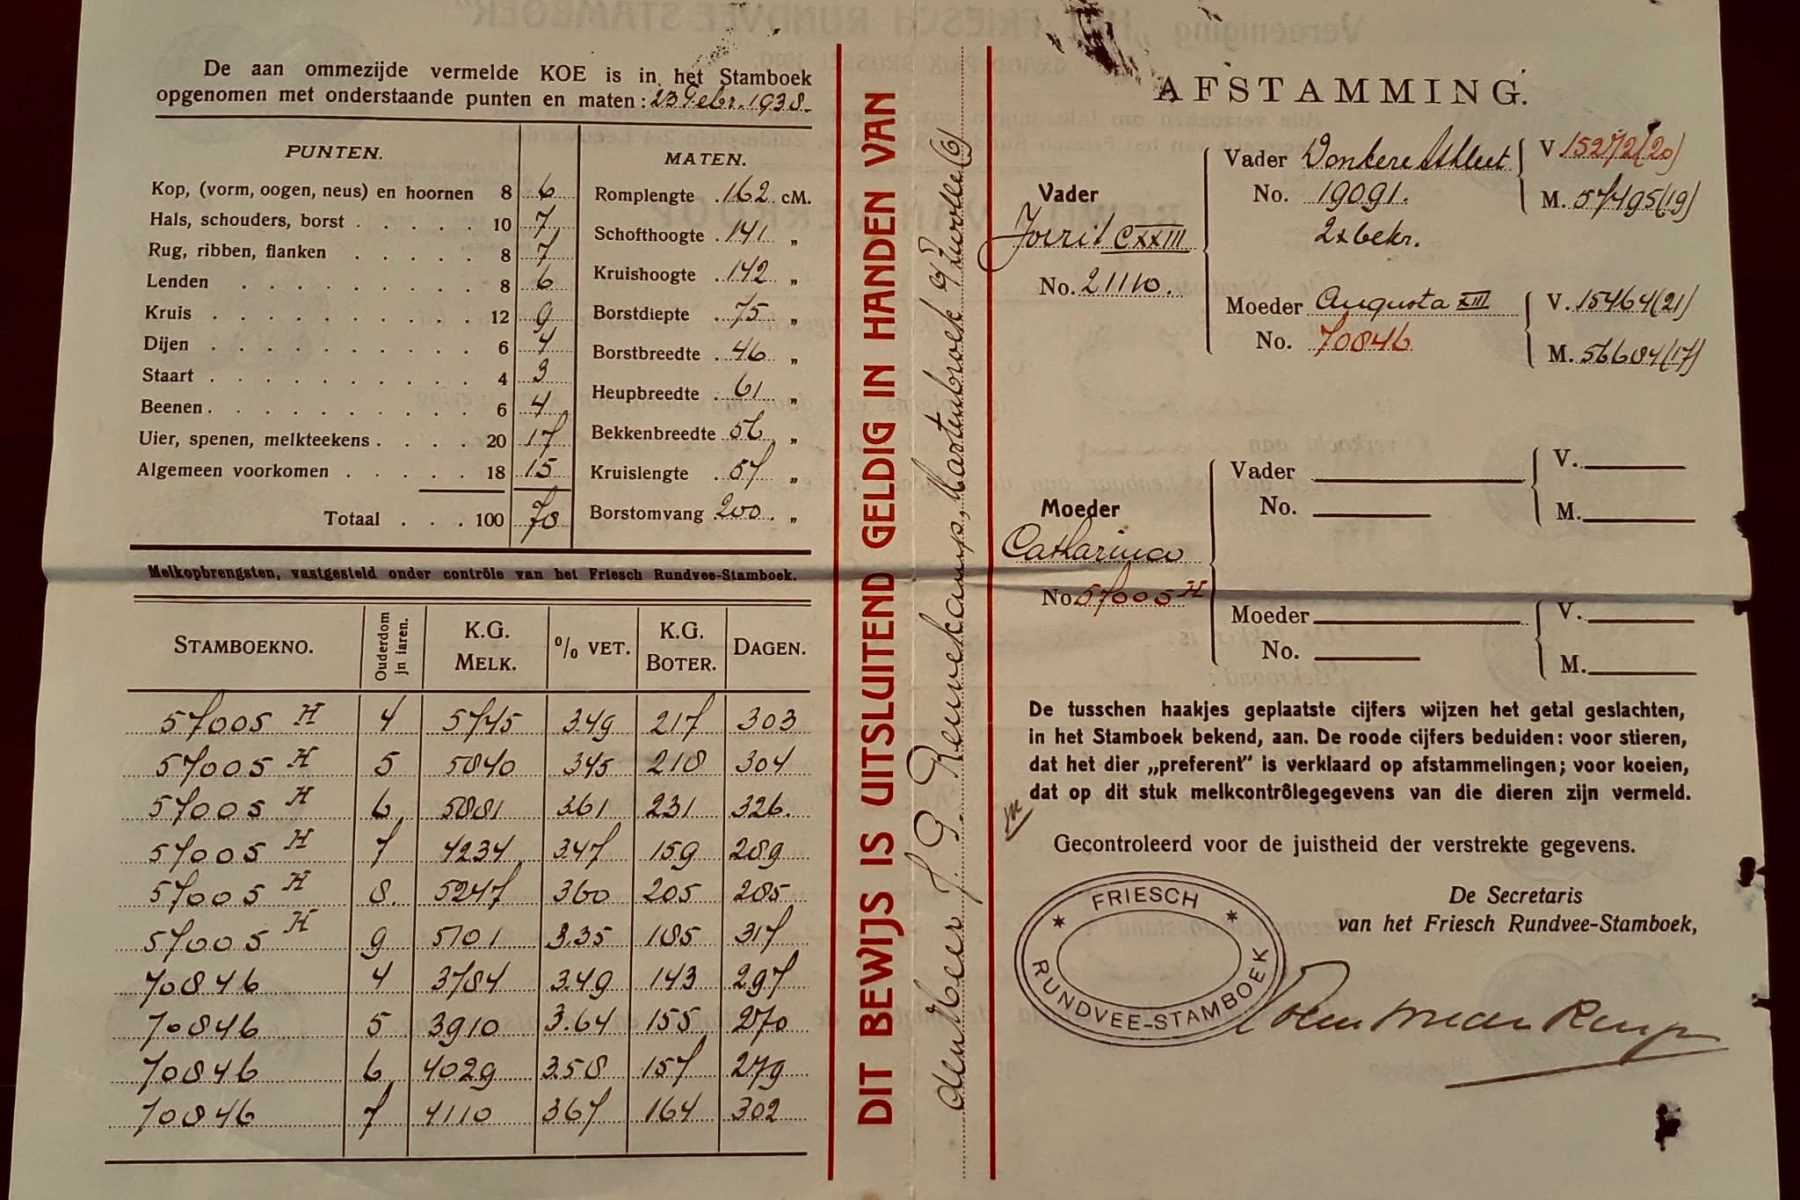 De aan ommezijde vermelde KOE is in het Stamboek
opgenomen met onderstaande punten en maten: 23 Febr. 1938.
PUNTEN.
Kop, (vorm, oogen, neus) en hoornen 8 6
Hals, schouders, borst . . . . . 10 7
Rug, ribben, flanken . . . . . 8 7
Lenden . . . . . . . . . 8 6
Kruis . . . . . . . . . . 12 9
Dijen . . . . . . . . . . 6 4
Staart . . . . . . . . . . 4 3
Beenen . . . . . . . . . . 6 4
Uier, spenen, melkteekens . . . . 20 17
Algemeen voorkomen . . . . . 18 15
Totaal . . . 100 78
MATEN.
Romplengte . 162 cM.
Schofthoogte . 141 „
Kruishoogte . 142 „
Borstdiepte . 75 „
Borstbreedte . 46 „
Heupbreedte . 61 „
Bekkenbreedte 56 „
Kruislengte . 57 „
Borstomvang 200 . „
Melkopbrengsten, vastgesteld onder contrôle van het Friesch Rundvee-Stamboek.
STAMBOEKNO. Ouderdom in jaren. K.G. MELK. % VET. K.G. BOTER. DAGEN.
57005 H 4 5745 3.49 217 303
57005 H 5 5840 345 218 304
57005 H 6 5881 361 231 326.
57005 H 7 4234 347 159 289
57005 H 8. 5247 360 205 285
57005 H 9 5101 3.35 185 317
70846 4 3784 3.49 143 297
70846 5 3910 3.64 155 270
70846 6 4029 358 157 279
70846 7 4110 367 164 302
DIT BEWIJS IS UITSLUITEND GELDIG IN HANDEN VAN
den Heer J G
AFSTAMMING.
Vader
No. 21110.
Vader
No. 19091.
2x bekr.
V 15272(20)
M. 57495(19)
Moeder Augusta XIII
No. 70846
V. 15464(21)
M. 56684(17)
Moeder
Catharina
No 57005 H
Vader
No.
V.
M.
Moeder
No.
V.
M.
De tusschen haakjes geplaatste cijfers wijzen het getal geslachten,
in het Stamboek bekend, aan. De roode cijfers beduiden: voor stieren,
dat het dier „preferent” is verklaard op afstammelingen; voor koeien,
dat op dit stuk melkcontrôlegegevens van die dieren zijn vermeld.
Gecontroleerd voor de juistheid der verstrekte gegevens.
De Secretaris
van het Friesch Rundvee-Stamboek,
FRIESCH
RUNDVEE-STAMBOEK